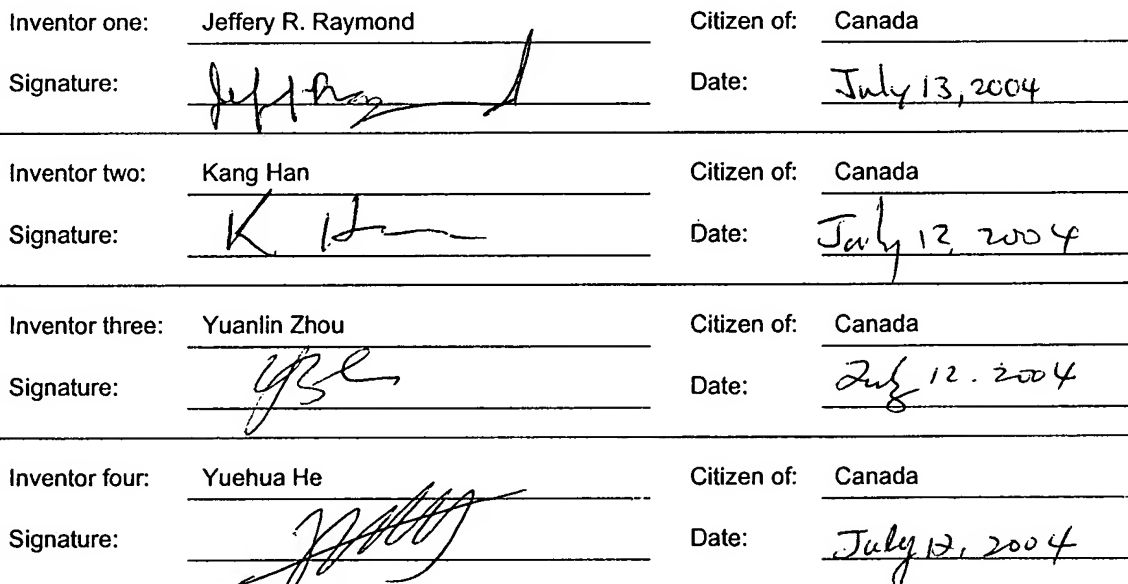 Inventor one: Jeffery R. Raymond Citizen of: Canada
Signature: Date: July 13, 2004
Inventor two: Kang Han Citizen of: Canada
Signature: K. H Date: July 12, 2004
Inventor three: Yuanlin Zhou Citizen of: Canada
Signature: Date: July 12. 2004
Inventor four: Yuehua He Citizen of: Canada
Signature: Date: July 12, 2004